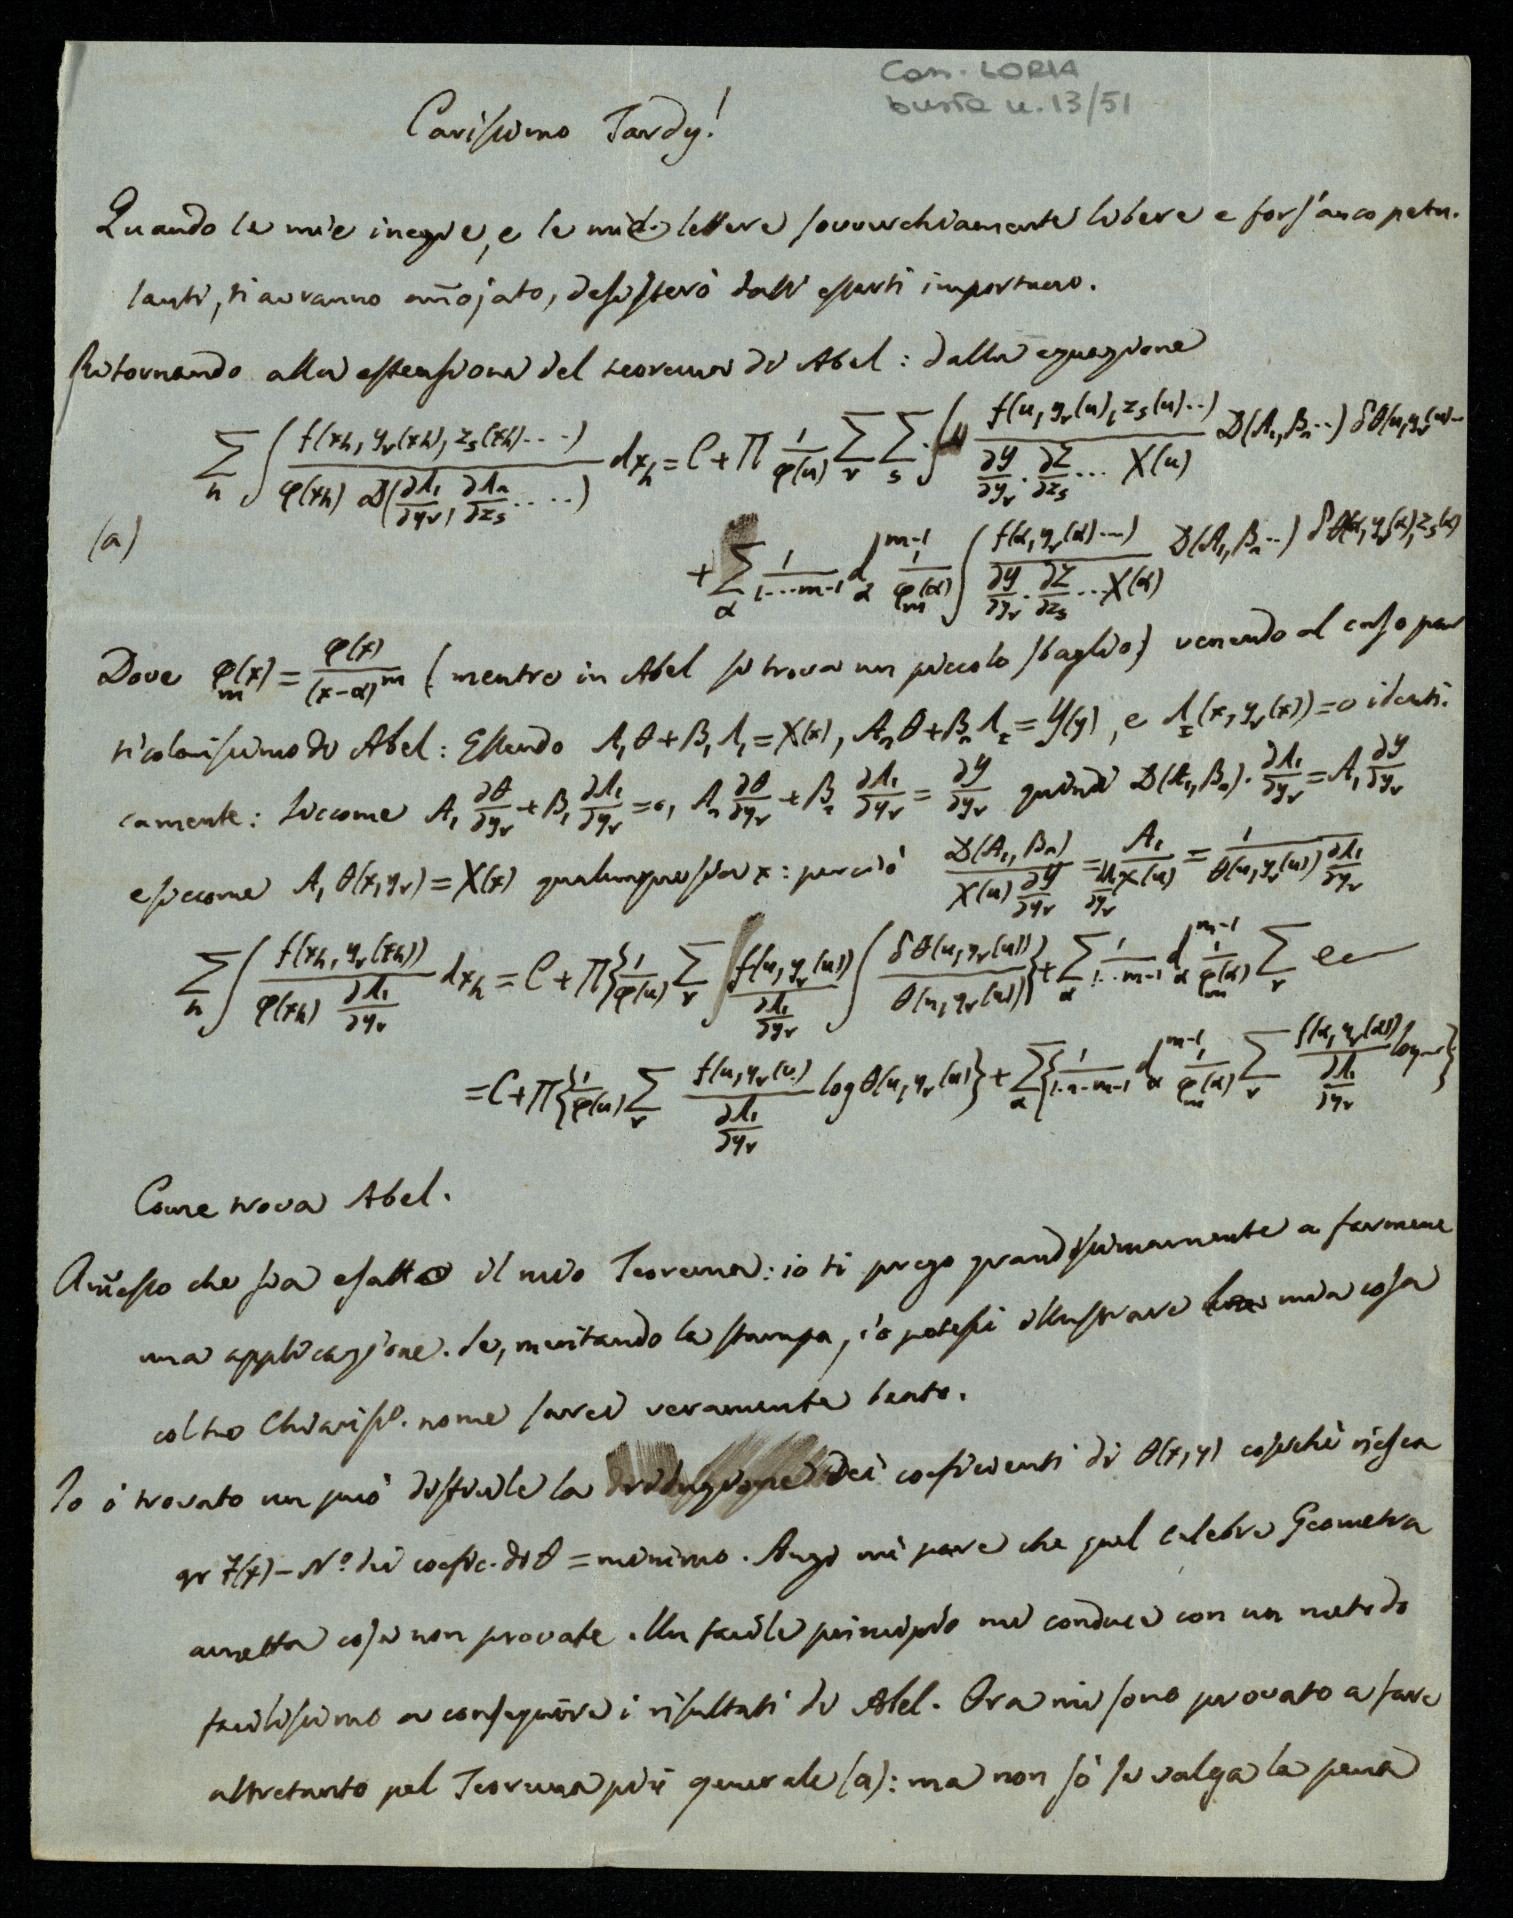 Cass. LORIA
busta n. 13/51
Carissimo Tardy!
Quando le mie inezie, e le mie lettere soverchiamente libere e fors'anco petu-
lanti, ti avranno annojato, desisterò dall' esserti importuno.
Ritornando alla estensione del teorema di Abel: dalla equazione
\sum_h \int \frac{f(x_h, y_r(x_h), z_s(x_h)\cdots)}{\varphi(x_h) D(\frac{\partial Λ_1}{\partial y_r}, \frac{\partial Λ_2}{\partial z_s}\cdots)} dx_h = C + Π \frac{1}{\varphi(u)} \sum_r \sum_s \int \frac{f(u, y_r(u), z_s(u)\cdots)}{\frac{\partial Y}{\partial y_r}\cdot\frac{\partial Z}{\partial z_s}\cdots X(u)} D(A_1, B_2\cdots) δθ(u, y_r(u)\cdots
(a)
+ \sum_α \frac{1}{1\cdots m-1} d_α^{m-1} \frac{1}{\varphi_m(α)} \int \frac{f(α, y_r(α)\cdots)}{\frac{\partial Y}{\partial y_r}\cdot\frac{\partial Z}{\partial z_s}\cdots X(α)} D(A_1, B_2\cdots) δθ(α, y_r(α), z_s(α)
Dove \varphi_m(x) = \frac{\varphi(x)}{(x-α)^m} (mentre in Abel si trova un piccolo sbaglio) venendo al caso par
ticolarissimo di Abel: Essendo A_1θ+B_1Λ_1=X(x), A_2θ+B_2Λ_1=Y(y), e Λ_1(x, y_r(x))=0 identi-
camente: Siccome A_1 \frac{\partial θ}{\partial y_r}+B_1 \frac{\partial Λ_1}{\partial y_r}=0, A_2 \frac{\partial θ}{\partial y_r}+B_2 \frac{\partial Λ_1}{\partial y_r}=\frac{\partial Y}{\partial y_r} quindi D(A_1, B_2)\cdot\frac{\partial Λ_1}{\partial y_r}=A_1 \frac{\partial Y}{\partial y_r}
e siccome A_1 θ(x, y_r)=X(x) qualunque sia x: perciò \frac{D(A_1, B_2)}{X(u)\frac{\partial Y}{\partial y_r}}=\frac{A_1}{\frac{\partial Λ_1}{\partial y_r}X(u)}=\frac{1}{θ(u, y_r(u))\frac{\partial Λ_1}{\partial y_r}}
\sum_h \int \frac{f(x_h, y_r(x_h))}{\varphi(x_h)\frac{\partial Λ_1}{\partial y_r}} dx_h = C + Π\{\frac{1}{\varphi(u)} \sum_r \int \frac{f(u, y_r(u))}{\frac{\partial Λ_1}{\partial y_r}} \int \frac{δθ(u, y_r(u))}{θ(u, y_r(u))}\}+\sum_α \frac{1}{1\cdots m-1} d_α^{m-1} \frac{1}{\varphi_m(α)} \sum_r ec
= C+Π\{\frac{1}{\varphi(u)} \sum_r \frac{f(u, y_r(u))}{\frac{\partial Λ_1}{\partial y_r}} log θ(u, y_r(u)\}+\sum_α\{\frac{1}{1\cdot 2\cdot m-1} d_α^{m-1} \frac{1}{\varphi_m(α)} \sum_r \frac{f(α, y_r(α))}{\frac{\partial Λ_1}{\partial y_r}} log\}
Come trova Abel.
Ammesso che sia esatto il mio Teorema: io ti prego grandissimamente a farmene
una applicazione. Se, meritando la stampa, io potessi illustrare mia cosa
col tuo Chiariss.º nome sarei veramente beato.
Io ò trovato un pò difficile la deduzione dei coefficienti di θ(x,y) cosichè riesca
gr F(x) – Nº dei coeffic. di θ = minimo. Anzi mi pare che quel celebre Geometra
ammetta cose non provate. Un facile principio mi conduce con un metodo
facilissimo a conseguire i risultati di Abel. Ora mi sono provato a fare
altretanto pel Teorema più generale (a): ma non sò se valga la pena